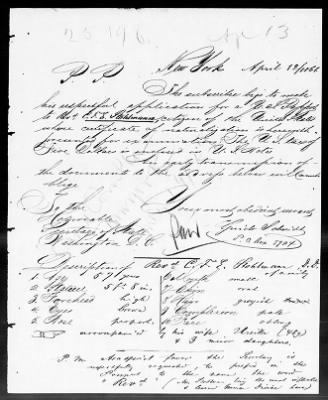 25.196 Ap 13
P. P. New York April 12/186
The subscriber begs to make
his respectful application for a U. S. Passport
to the Revd C. F. E. Stohlmann, citizen of the United States
whose certificate of naturalization is herewith
forwarded for examination. The U. S. tax of
Five Dollars is enclosed in U. S. Notes
An early transmission of
the documents to the address below will much
oblige
To the Your most obedient servant
Honorable
Secretary of State
Washington D. C. P. O. Box
Description of Revd C. F. E. Stohlmann, D. D.
1. Age 57 years
2. Stature 5 ft 8 in. 6. Chin oval
3. Forehead high 7. Hair greyish
4. Eyes brown 8. Complexion pale
5. Nose 9. Face oblong
accompanied by his wife
& 3 minor daughters.
P. M. As a special favor the Secretary is
respectfully requested to prefix in the
Passport to the name the word
"Revd"